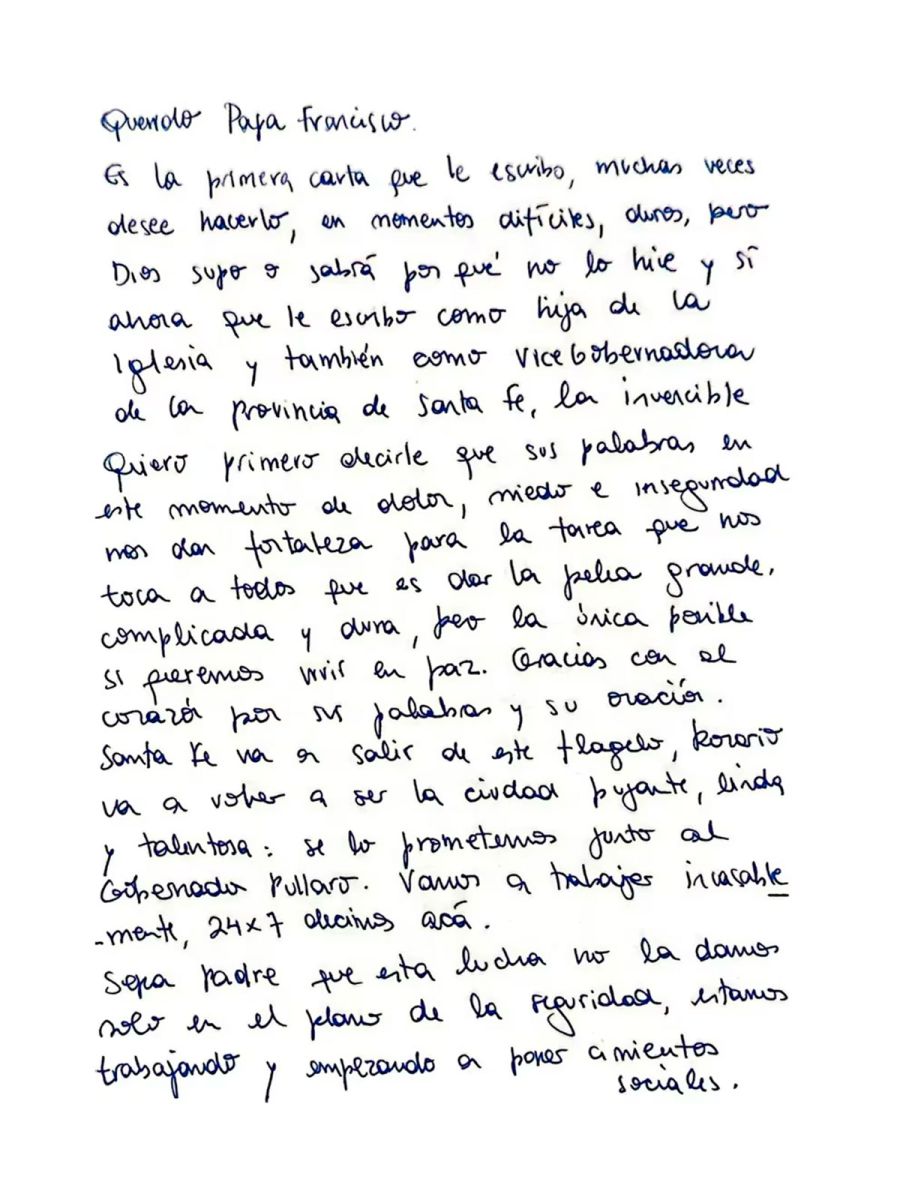 Querido Papa Francisco.
Es la primera carta que le escribo, muchas veces
desee hacerlo, en momentos difíciles, duros, pero
Dios supo o sabrá por qué no lo hice y sí
ahora que le escribo como hija de la
Iglesia y también como ViceGobernadora
de la provincia de Santa Fe, la invencible
Quiero primero decirle que sus palabras en
este momento de dolor, miedo e inseguridad
nos dan fortaleza para la tarea que nos
toca a todos que es dar la pelea grande,
complicada y dura, pero la única posible
si queremos vivir en paz. Gracias con el
corazón por sus palabras y su oración.
Santa Fe va a salir de este flagelo, Rosario
va a volver a ser la ciudad pujante, linda
y talentosa: se lo prometemos junto al
Gobernador Pullaro. Vamos a trabajar incasable
-mente, 24x7 decimos acá.
Sepa Padre que esta lucha no la damos
solo en el plano de la seguridad, estamos
trabajando y empezando a poner cimientos
sociales.